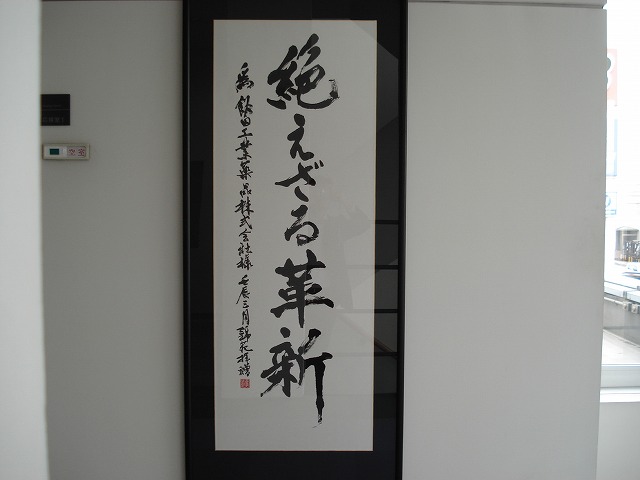 絶えざる革新
為飯田工業薬品株式会社様 壬辰三月 錦苑拝贈